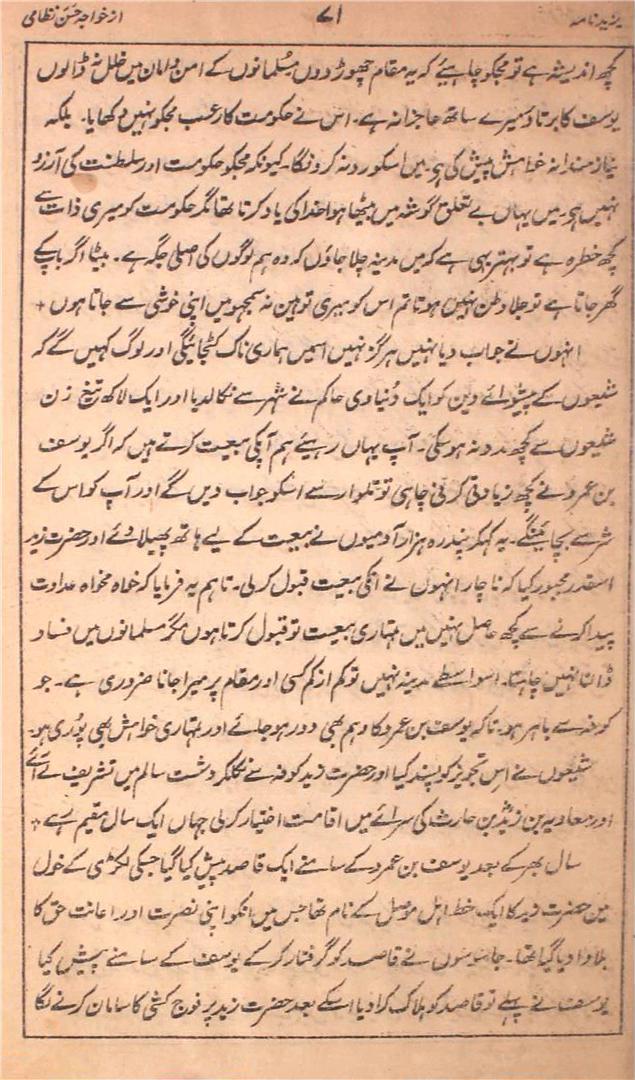 یزید نامہ ۷۱ از خواجہ حسن نظامی
کچھ اندیشہ ہے تو مجکو چاہیئے کہ یہ مقام چھوڑ دوں مسلمانوں کے امن و امان میں خلل نہ ڈالوں
یوسف کا برتاو میرے ساتھ عاجزانہ ہے۔ اس نے حکومت کا رعب مجکو نہیں دکھایا۔ بلکہ
نیازمندانہ خواہش پیش کی ہے۔ میں اسکو رد نہ کرونگا۔ کیونکہ مجکو حکومت اور سلطنت کی آرزو
نہیں ہے۔ میں یہاں بے تعلق گوشہ میں بیٹھا ہوا خدا کی یاد کرتا تھا مگر حکومت کو میری ذات سے
کچھ خطرہ ہے تو بہتر یہی ہے کہ میں مدینہ چلا جاؤں کہ وہ ہم لوگوں کی اصلی جگہ ہے۔ بیٹا اگر باپ کے
گھر جاتا ہے تو جلا وطن نہیں ہوتا تم اس کو میری توہین نہ سمجھو میں اپنی خوشی سے جاتا ہوں +
انہوں نے جواب دیا نہیں ہرگز نہیں اسمیں ہماری ناک کٹجائیگی اور لوگ کہیں گے کہ
شیعوں کے پیشوائے دین کو ایک دنیاوی حاکم نے شہر سے نکالدیا اور ایک لاکھ تیغ زن
شیعوں سے کچھ مدد نہ ہو سکی۔ آپ یہاں رہیئے ہم آپکی بیعت کرتے ہیں کہ اگر یوسف
بن عمرو نے کچھ زیادتی کرنی چاہی تو تلوار سے اسکو جواب دیں گے اور آپ کو اس کے
شر سے بچائینگے۔ یہ کہکر پندرہ ہزار آدمیوں نے بیعت کے لیے ہاتھ پھیلا دئے اور حضرت زید
اسقدر مجبور کیا کہ ناچار انہوں نے انکی بیعت قبول کر لی۔ تاہم یہ فرمایا کہ خواہ مخواہ عداوت
پیدا کرنے سے کچھ حاصل نہیں میں تمہاری بیعت تو قبول کرتا ہوں مگر مسلمانوں میں فساد
ڈالنا نہیں چاہتا۔ اسواسطے مدینہ نہیں تو کم از کم کسی اور مقام پر میرا جانا ضروری ہے۔ جو
کوفہ سے باہر ہو۔ تاکہ یوسف بن عمرو کا وہم بھی دور ہو جائے اور تمہاری خواہش بھی پوری ہو۔
شیعوں نے اس تجویز کو پسند کیا اور حضرت زید کوفہ سے نکلکر دشت سالم میں تشریف لے آئے
اور معاویہ بن زید بن حارث کی سرائے میں اقامت اختیار کر لی جہاں ایک سال مقیم رہے +
سال بھر کے بعد یوسف بن عمرو کے سامنے ایک قاصد پیش کیا گیا جسکی لکڑی کے خول
میں حضرت زید کا ایک خط اہل موصل کے نام تھا جس میں انکو اپنی نصرت اور اعانت حق کا
بلاوا دیا گیا تھا۔ جاسوسوں نے قاصد کو گرفتار کر کے یوسف کے سامنے پیش کیا
یوسف نے پہلے تو قاصد کو ہلاک کرا دیا اسکے بعد حضرت زید پر فوج کشی کا سامان کرنے لگا